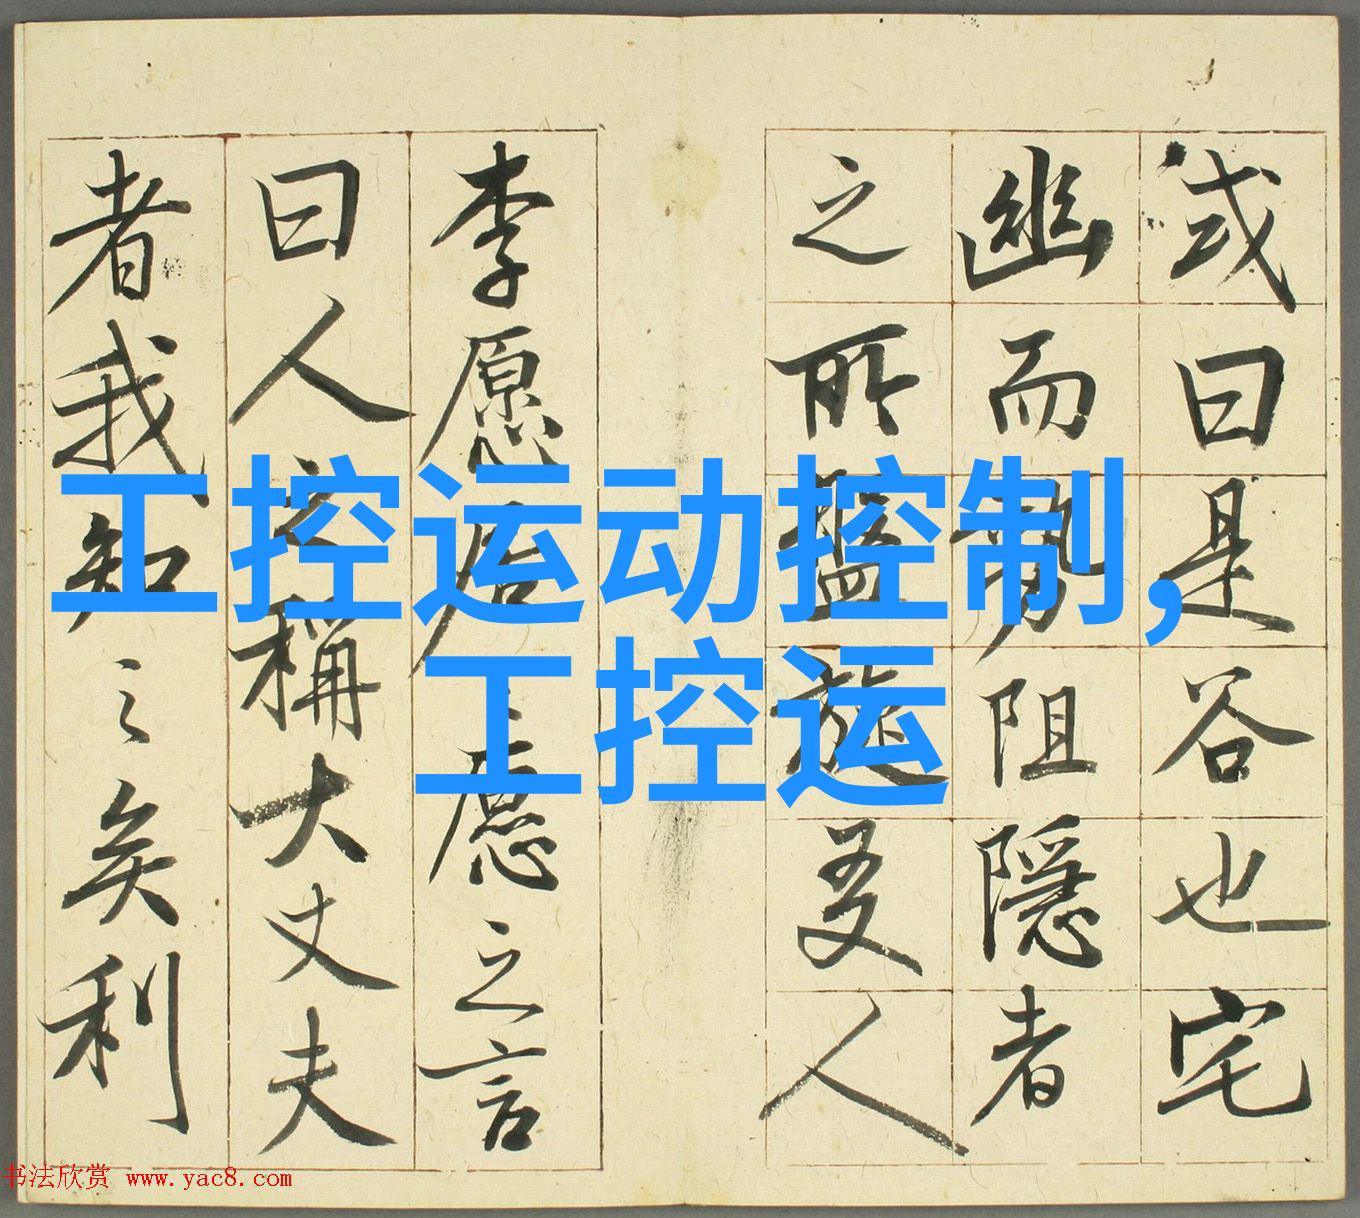 或曰是谷也宅
幽而勢阻隱者
之所盤旋友人
李愿居之愿之言
曰人之稱大丈夫
者我知之矣利
工控运动控制,
工控运
书法欣赏 www.yac8.com